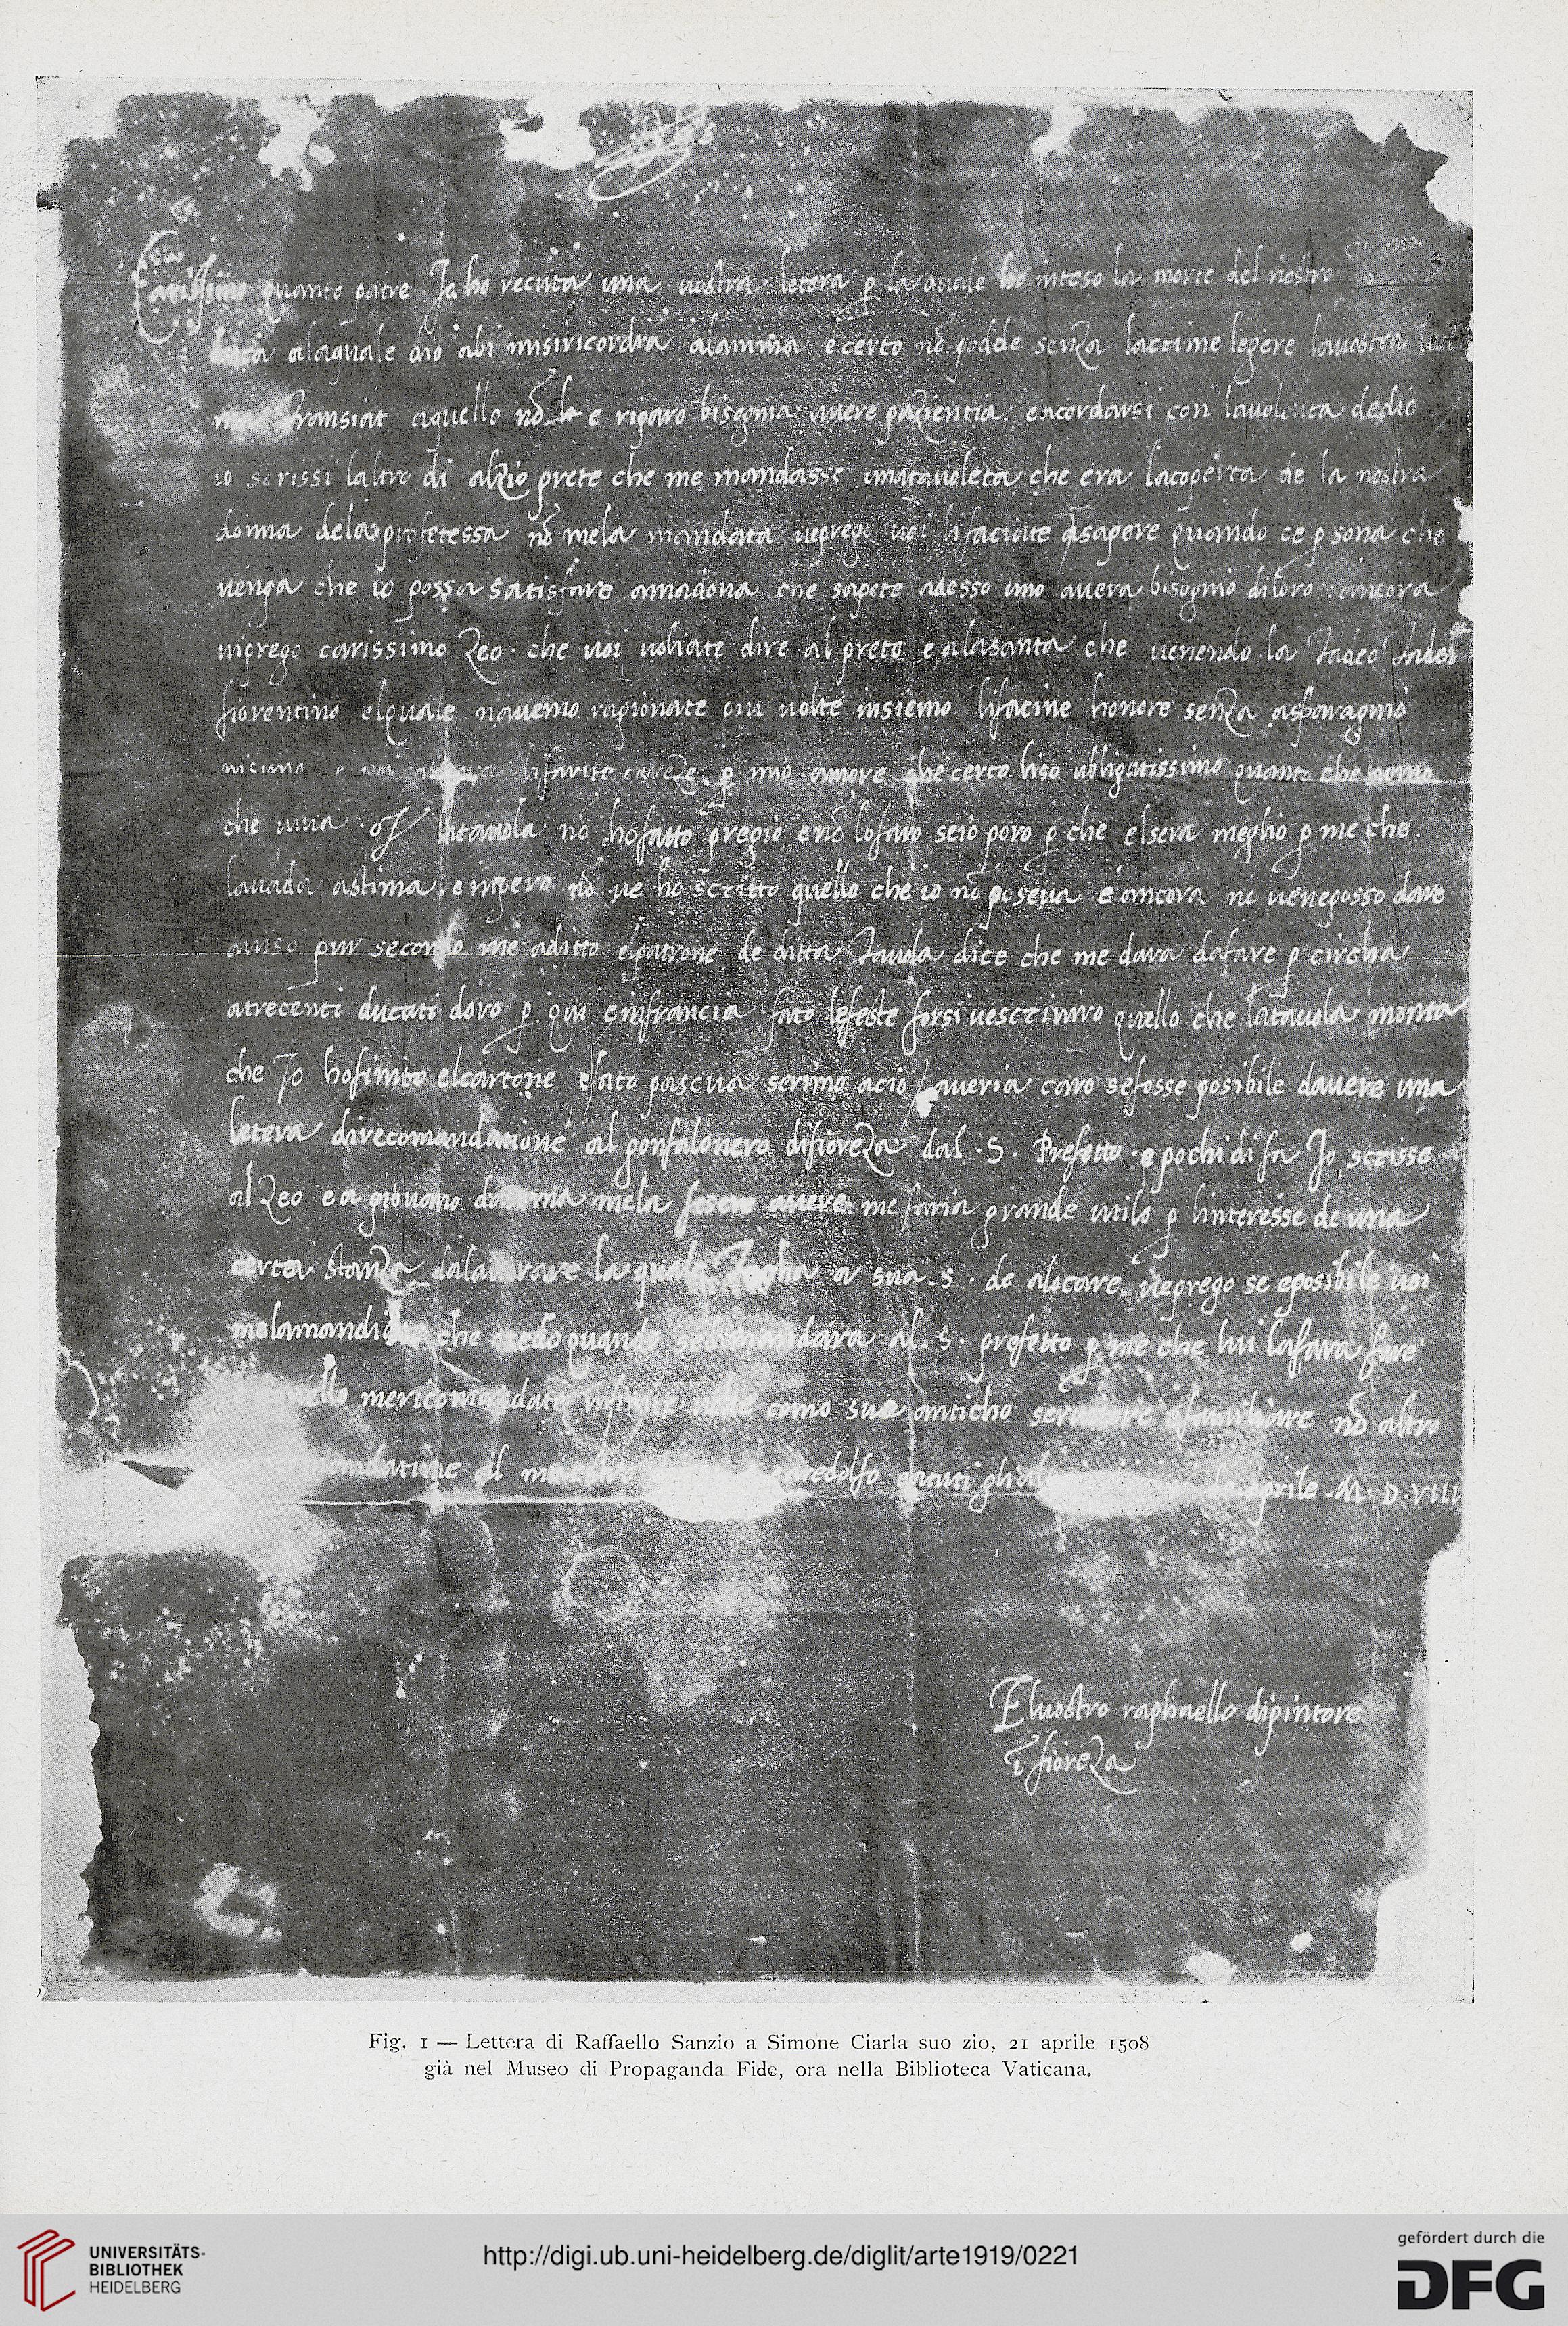 Carissimo quanto patre Jo ho recevta una vostra letera p̱ la quale ho inteso la morte del nostro
duca alaquale dio abi misiricordia alanima e certo nõ podde senza lacrime legere la vostra
transiat aquello nõ le e riparo bisognia avere pazientia e acordarsi con la volonta de dio
io scrissi laltro di alzio prete che me mandasse una tavoleta che era lacoperta de la nostra
donna dela profetessa nõ mela mandata ve prego voi li faciate asapere quando ce p̱sona che
venga che io possa satisfare amadona che sapete adesso uno avera bisognio di loro ancora
vi prego carissimo Zeo che voi voliate dire al preto e ala santa che venendo la Tadeo Tadei
fiorentino elquale navemo ragionate piu volte insiemo li facine honore senza asparagnio
nisuno e voi ancora li farite careze p̱ mio amore che certo li so ubligatissimo quanto che homo
che viva la tavola nõ ho fatto pregio e nõ lo faro se io poro p̱ che el sera meglio p̱ me che
la vada astima e inpero nõ ve ho scritto quello che io nõ poseva e ancora nõ ve ne posso dare
aviso pur secondo me a ditto el patrone de ditta Tavola dice che me dara da fare p̱ circha
a trecenti ducati doro p̱ qui e in francia fato le feste forsi ve scrivero quello che la tavola monta
che Jo ho finito el cartone e fato pascua serimo acio averia caro se fosse posibile davere una
letera di recomandatione al gonfalonero di fiorenza dal .S. Prefetto e pochi di fa Jo scrisse
al Zeo e a giovano da roma me la fesere avere me faria grande utilo p̱ linteresse de una
certa stanza da lavorare la quale Tocha a sua .s. de alocare ve prego se e posibile voi
me la mandiate che credo quando se dimandara al .S. prefetto p̱ me che lui la fara fare
e a quello me ricomandate infinite volte como suo anticho servitore e familiare nõ altro
ricomandatime al maestro redolfo e a tuti gli altri de aprile .M.D.VIII
El vostro raphaello dipintore
ĩ fiorenza
Fig. 1 — Lettera di Raffaello Sanzio a Simone Ciarla suo zio, 21 aprile 1508
già nel Museo di Propaganda Fide, ora nella Biblioteca Vaticana.
UNIVERSITÄTS-
BIBLIOTHEK
HEIDELBERG
http://digi.ub.uni-heidelberg.de/diglit/arte1919/0221
gefördert durch die
DFG